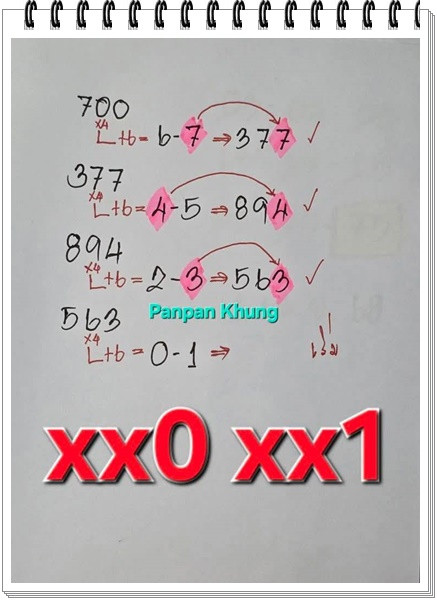 700
x4 +6 = 6-7 ⇒ 377 ✓
377
x4 +6 = 4-5 ⇒ 894 ✓
894
x4 +6 = 2-3 ⇒ 563 ✓
Panpan Khung
563
x4 +6 = 0-1 ⇒
xx0 xx1